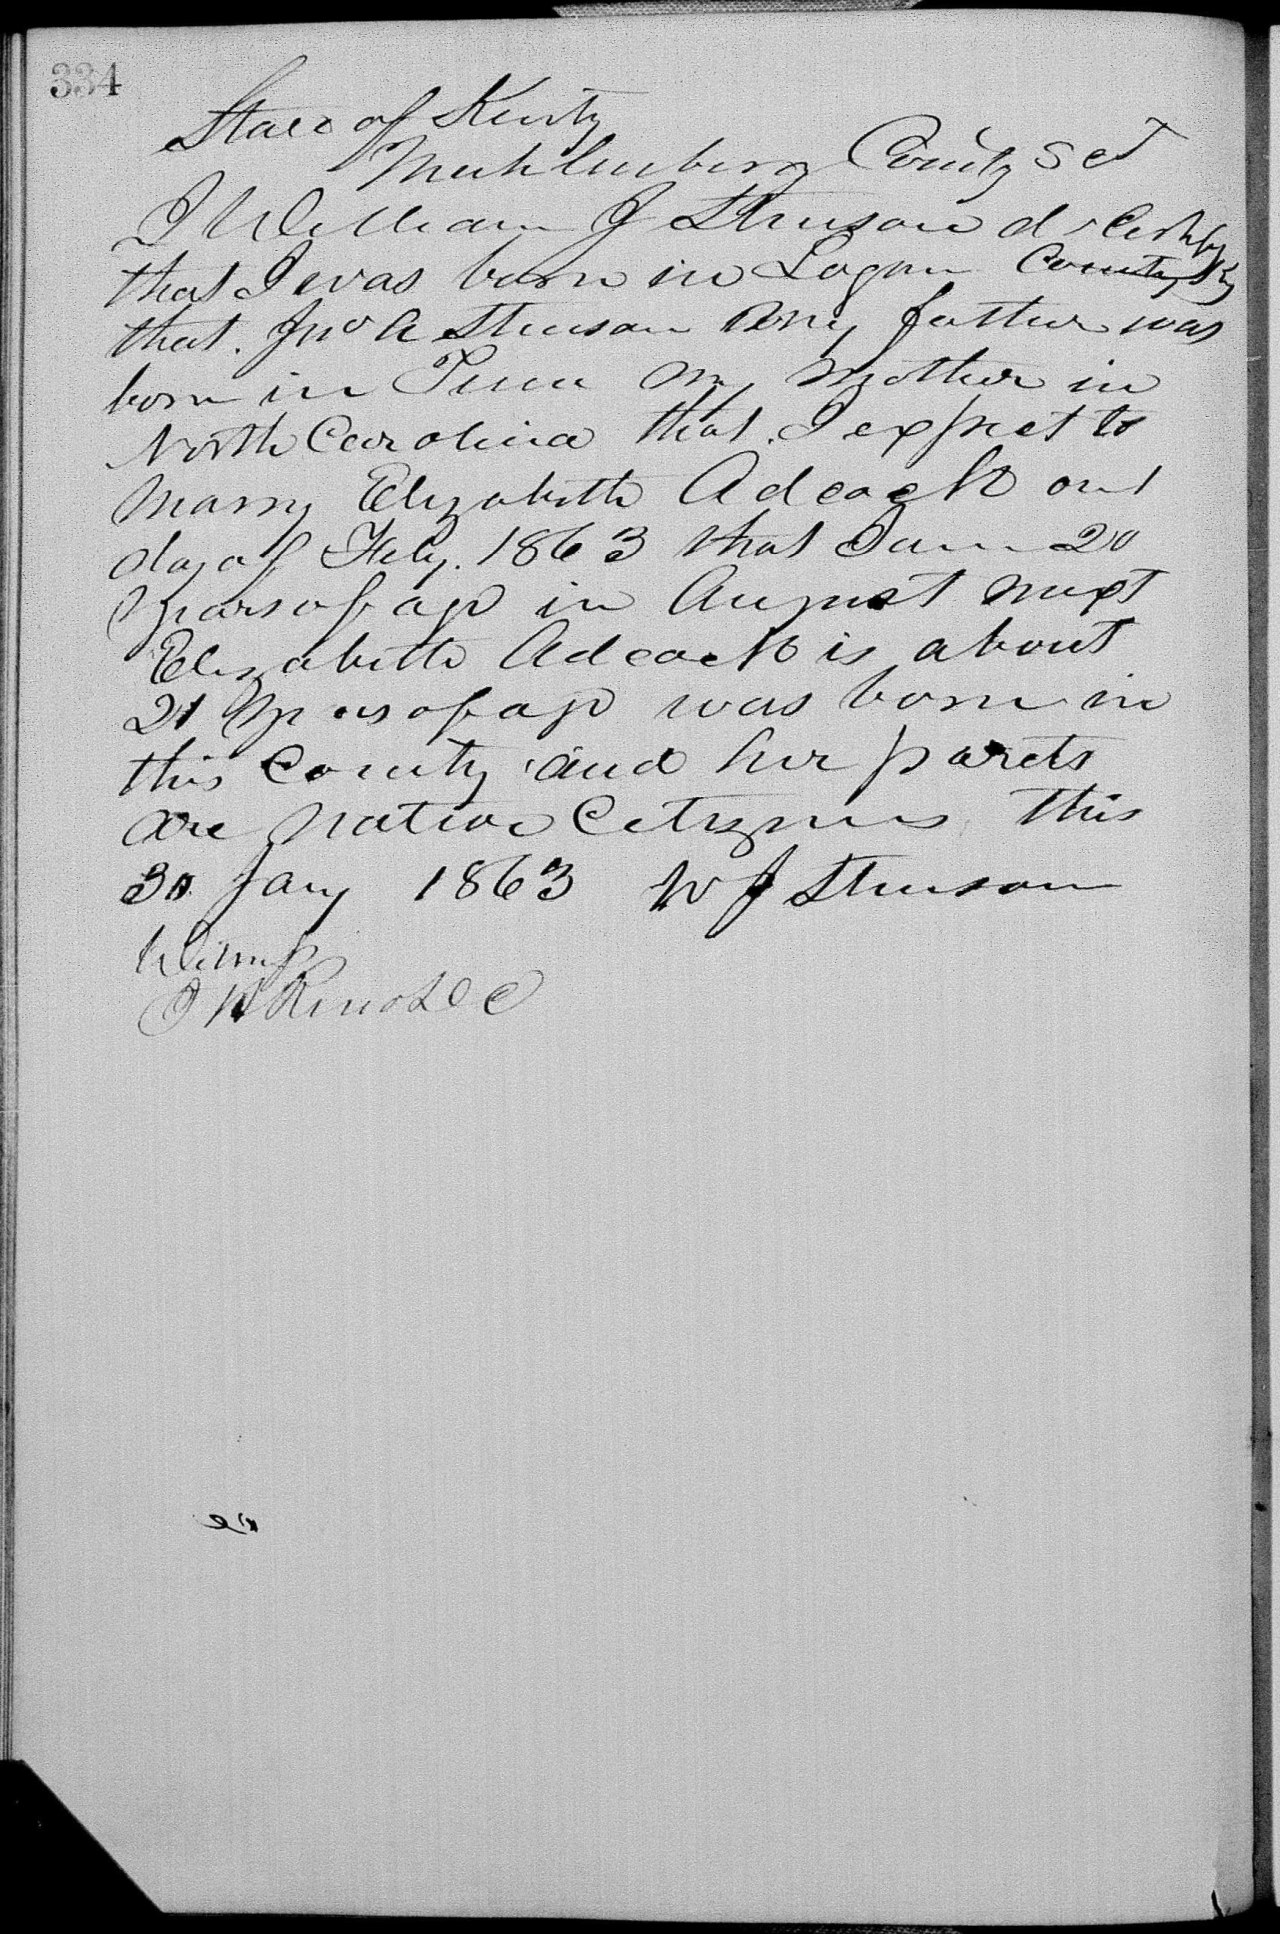 334
State of Kenty
Muhlenberg County Sct
I William J Stinson do Certify
that I was born in Logan County Ky
that Jno A Stinson my father was
born in Tenn my mother in
North Carolina that I expect to
marry Elizabeth Adcock on 1
day of Feby. 1863 that I am 20
years of age in August next
Elizabeth Adcock is about
21 years of age was born in
this County and her parets
are native Citizens this
30 Jany 1863 W J Stinson
Witness